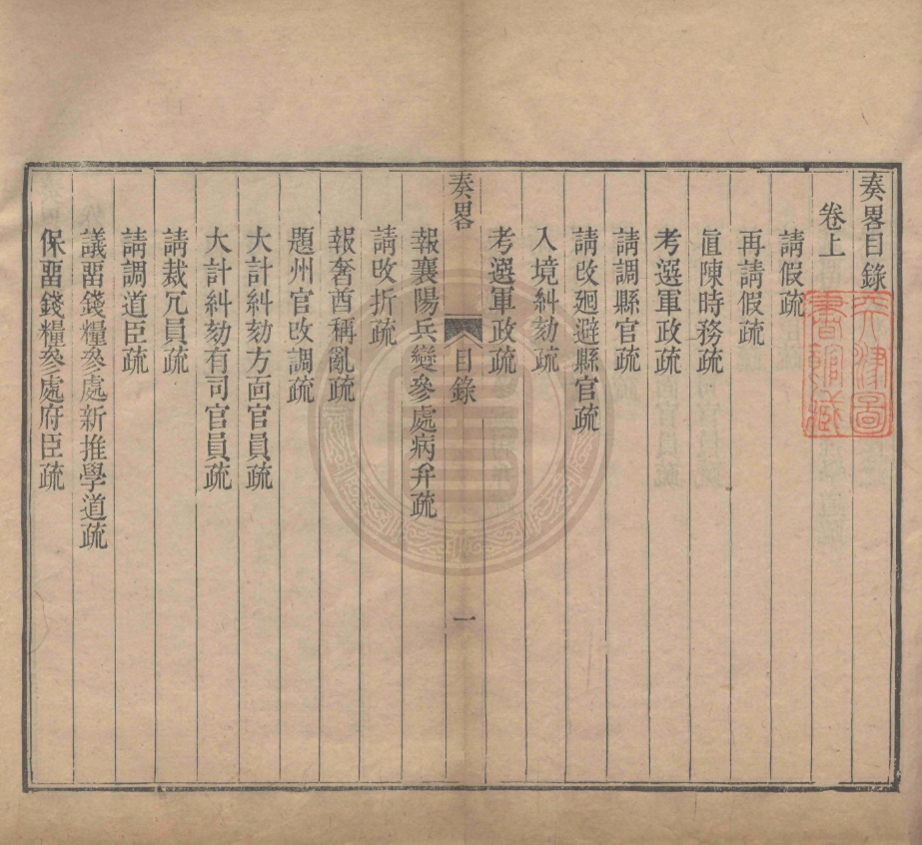 奏畧目錄
卷上
請假疏
再請假疏
直陳時務疏
考選軍政疏
請調縣官疏
請改廻避縣官疏
入境糾劾疏
考選軍政疏
奏畧
目錄
一
報襄陽兵變參處病弁疏
請改折疏
報奢酋稱亂疏
題州官改調疏
大計糾劾方面官員疏
大計糾劾有司官員疏
請裁冗員疏
請調道臣疏
議畱錢糧參處新推學道疏
保畱錢糧參處府臣疏
天津圖
書館藏